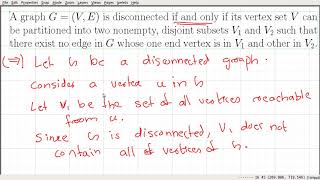 A graph G = (V, E) is disconnected if and only if its vertex set V can
be partitioned into two nonempty, disjoint subsets V₁ and V₂ such that
there exist no edge in G whose one end vertex is in V₁ and other in V₂.
(⇒) Let G be a disconnected graph.
Consider a vertex u in G
Let V₁ be the set of all vertices reachable
from u.
Since G is disconnected, V₁ does not
contain all of vertices of G.